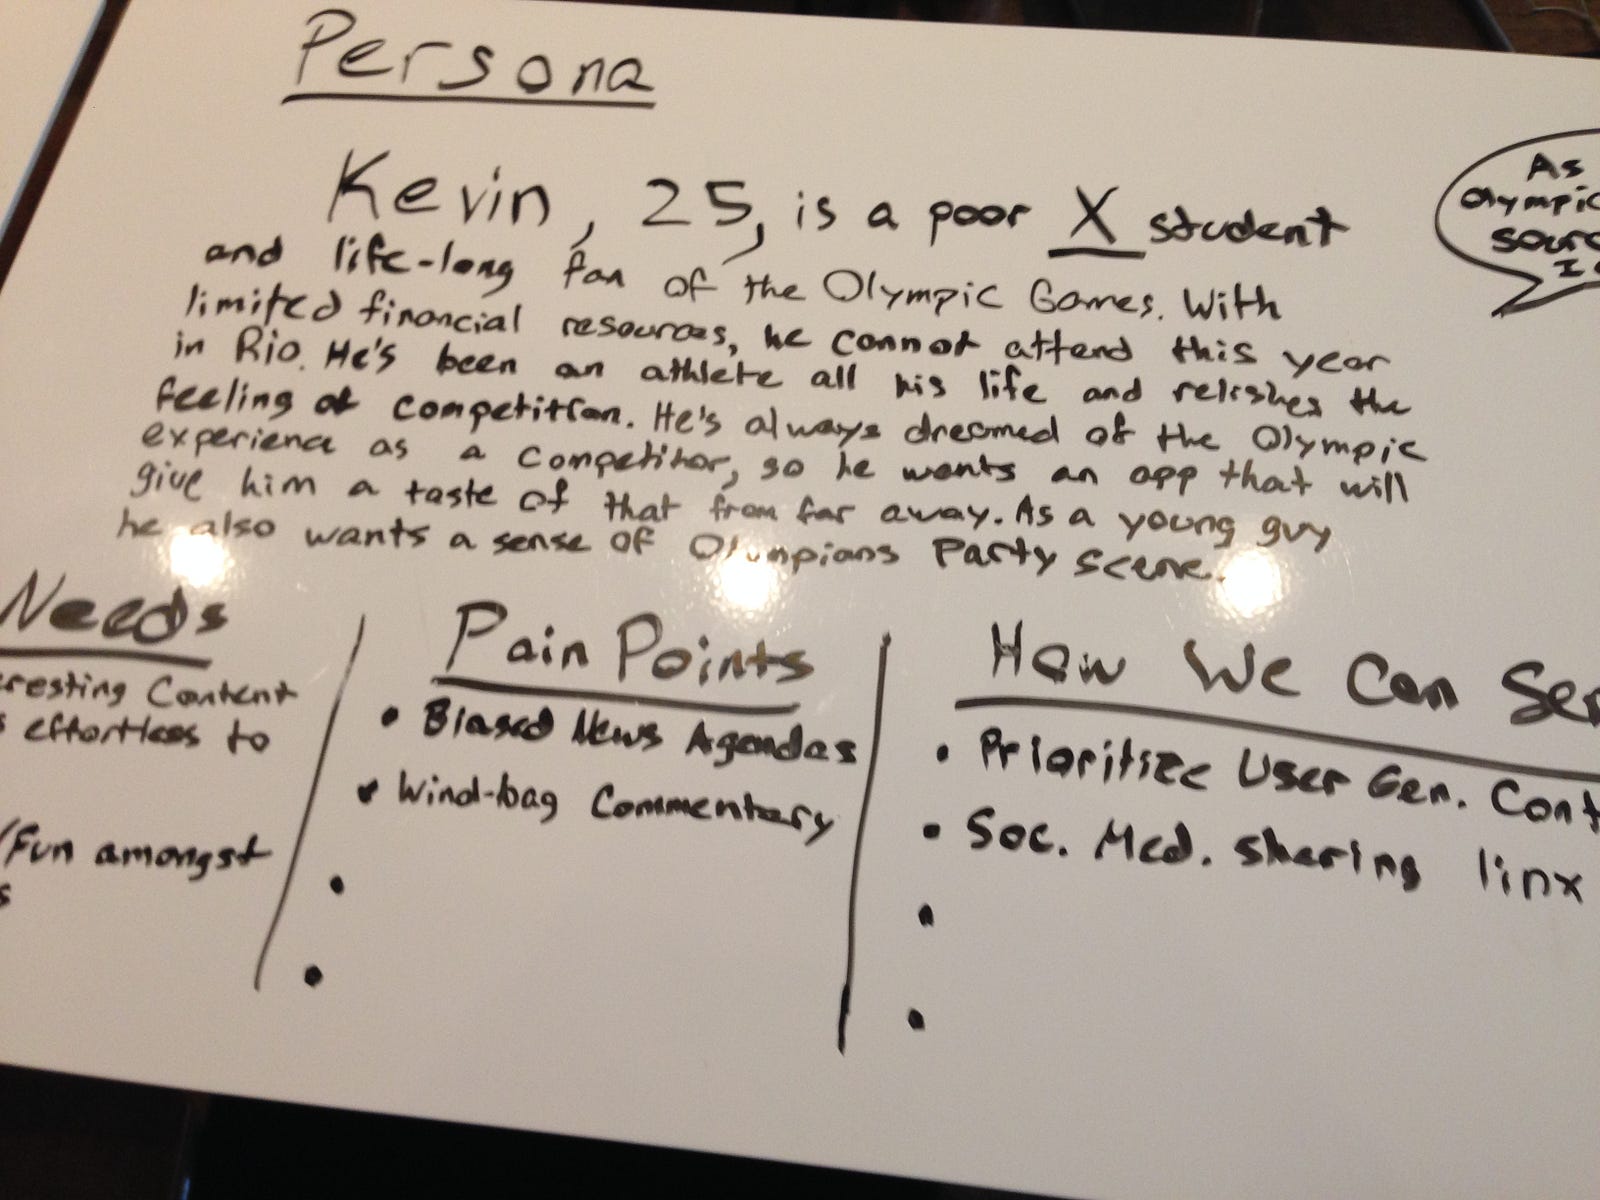 Persona
Kevin, 25, is a poor X student
and life-long fan of the Olympic Games. With
limited financial resources, he cannot attend this year
in Rio. He's been an athlete all his life and relishes the
feeling of competition. He's always dreamed of the Olympic
experience as a competitor, so he wants an app that will
give him a taste of that from far away. As a young guy
he also wants a sense of Olympians Party scene.
As
Olympic
sourc
I
Needs
resting Content
s effortless to
/Fun amongst
s
Pain Points
• Biased News Agendas
• Wind-bag Commentary
•
•
How We Can Ser
• Prioritize User Gen. Cont
• Soc. Med. sharing linx
•
•